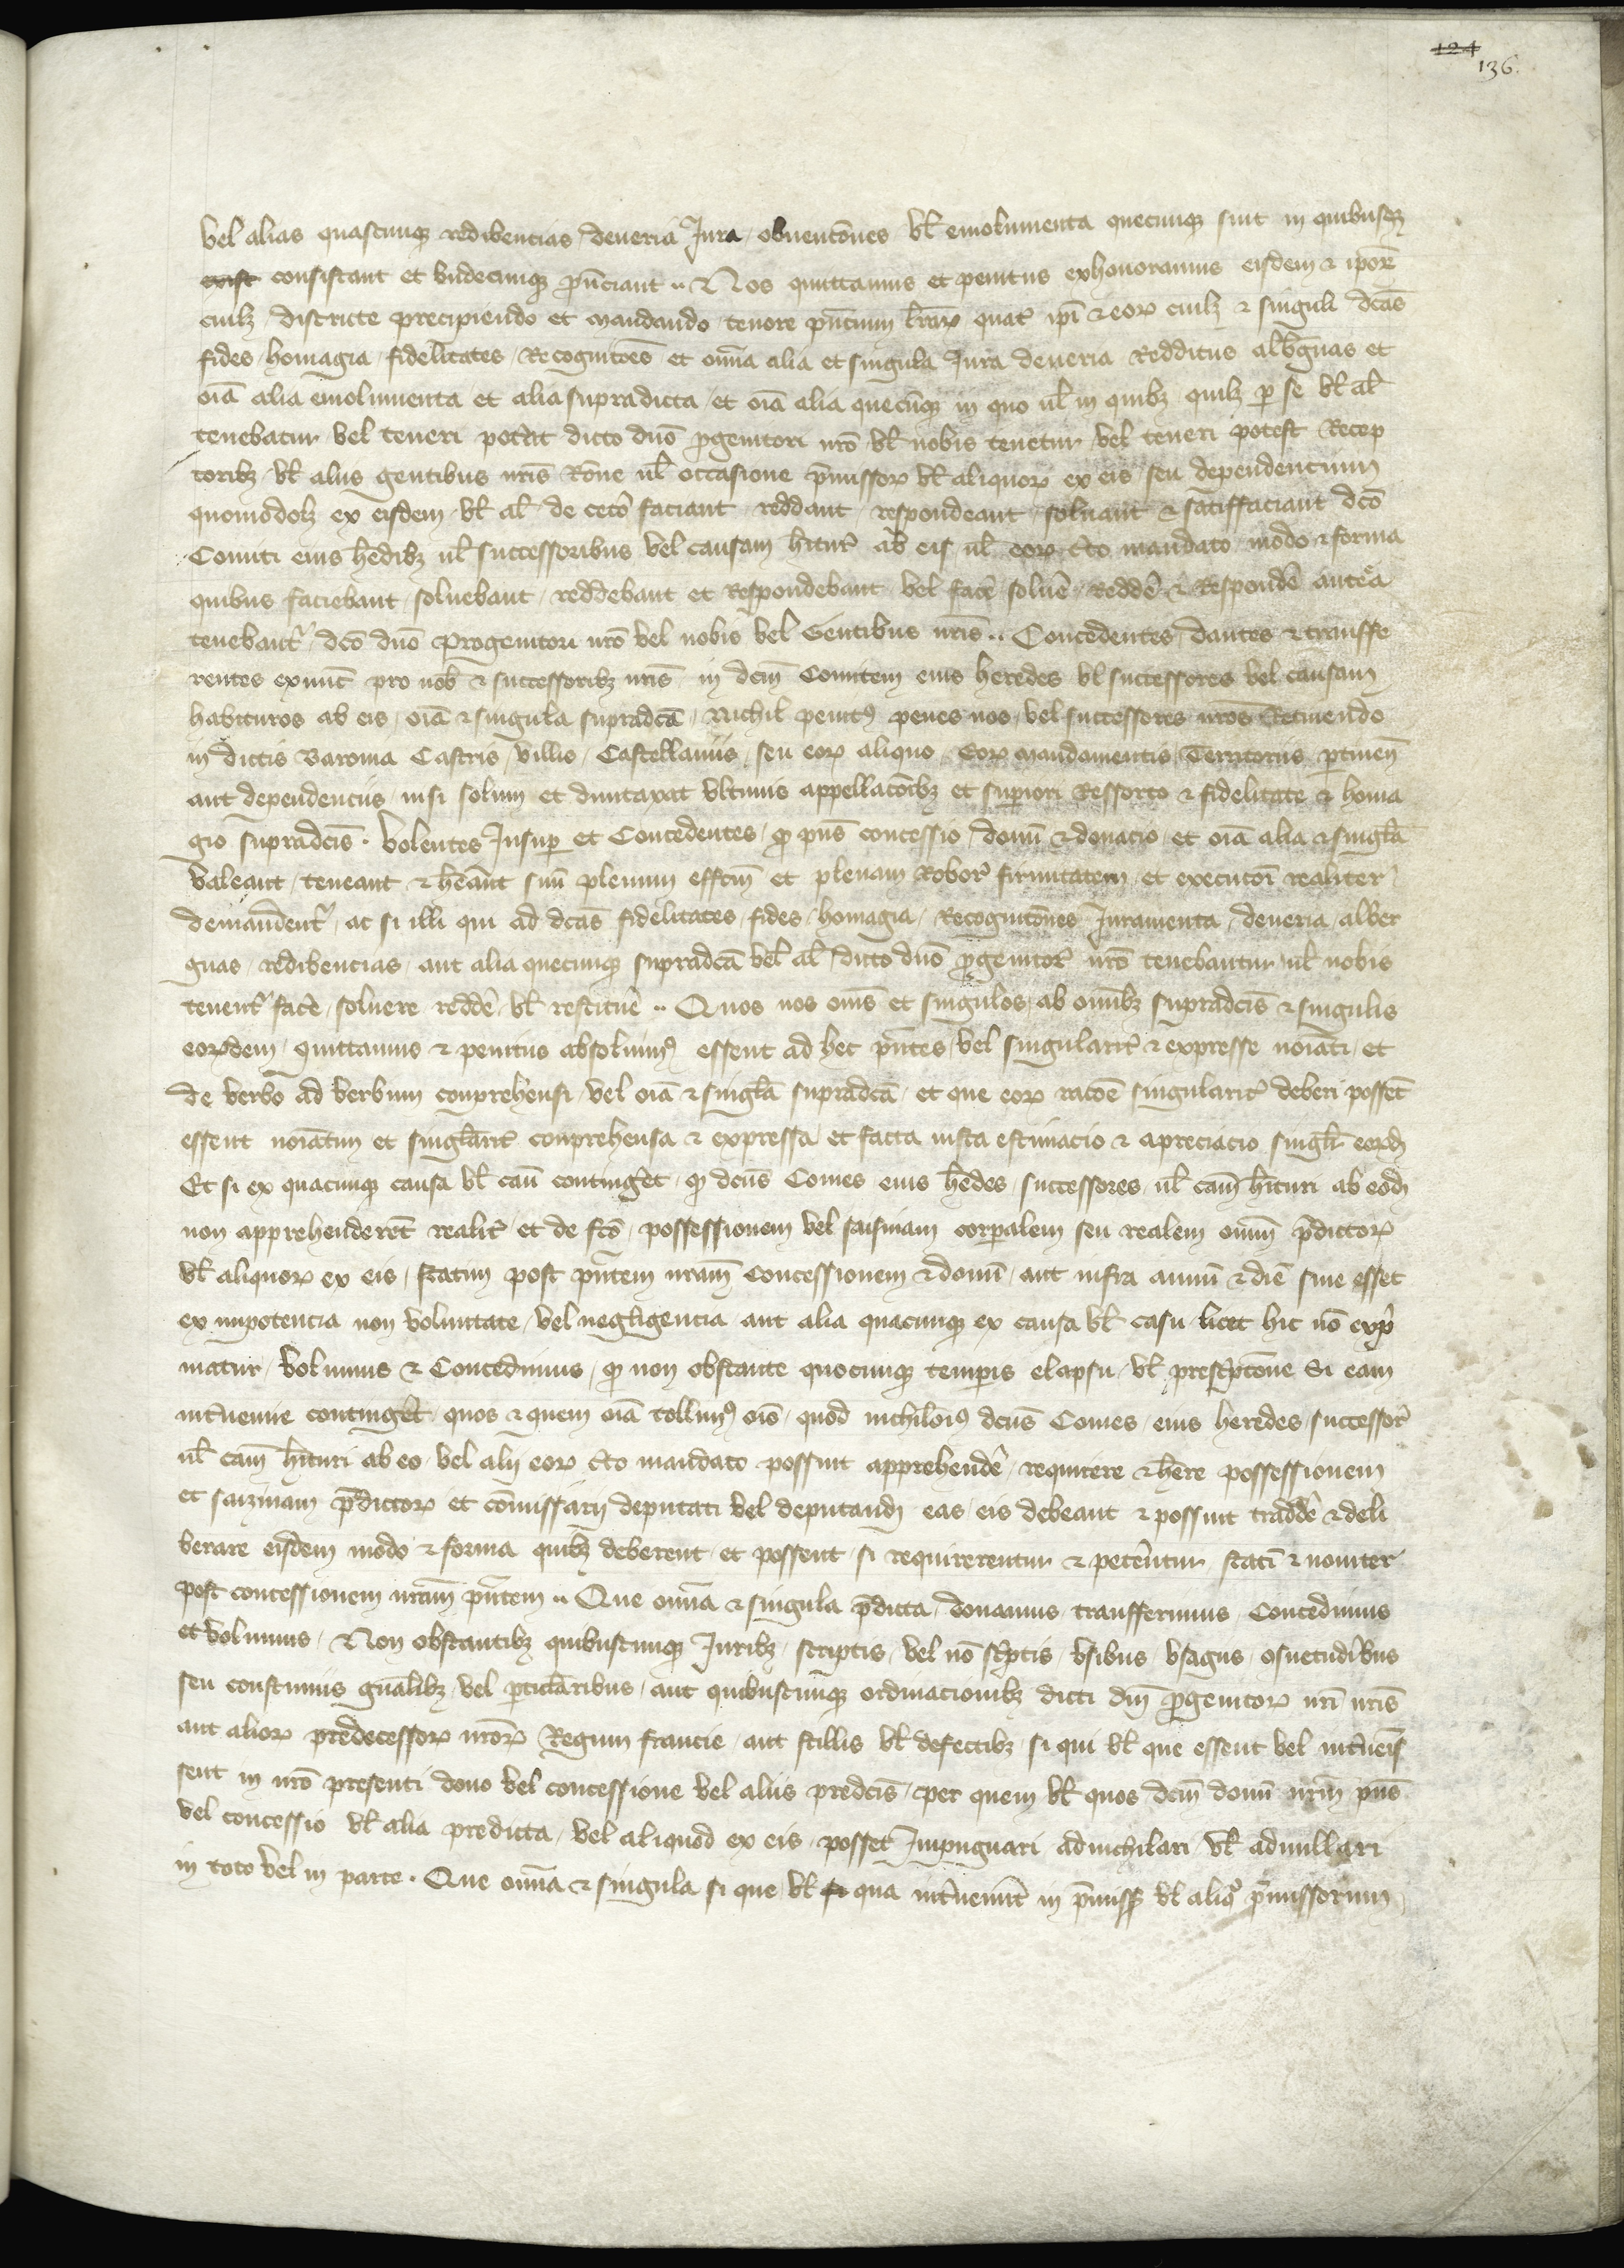 124
136.
vel alias quascunq redibencias deveria Jura obvencōnes vl emolumenta quecunq sint in quibusq
exist consistant et undecunq p̄veniant .. & Nos quittamus et penitus exhonoramus eisdem & ipor̄
cuilz districte precipiendo et mandando tenore pn̄cium l̄rar quat̄ ipī & eor cuilz & singuli dc̄as
fides homagia fidelitates Recognicōes et om̄ia alia et singula Jura deveria Redditus alb̄guas et
oīa alia emolumenta et alia supradicta et oīa alia quecūq in quo ul in quibz quilz p se vl al
tenebatur vel teneri pot̄at dicto dn̄o p̄genitori nr̄o vl nobis tenetur vel teneri potest Recep
toribz vl aliis gentibus nr̄is Rōne ul occasione p̄missor vl aliquor ex eis seu dependencium
quomodolz ex eisdem vl al de cet̄o faciant reddant respondeant solvant & satisfaciant dc̄o
Comiti eius h̄edibz ul successoribus vel causam h̄itur̄ ab eis ul eor c̄to mandato modo & forma
quibus faciebant solvebant reddebant et Respondebant vel fac̄e solv̄e Redd̄e & Respond̄e antea
tenebant̄ dc̄o dn̄o Progenitori nr̄o vel nobis vel Gentibus nr̄is .. Concedentes dantes & transffe
rentes exnunc pro nob & successoribz nr̄is in dc̄m Comitem eius heredes vl successores vel causam
habituros ab eis oīa & singula supradc̄a Nichil penit9 penes nos vel successores nr̄os Retinendo
in dictis Baronia Castris villis Castellaniis seu eor aliquo eor mandamentis Territoriis ptineñ
aut dependenciis nisi solum et duntaxat ultimis appellacōibz et supiori Ressorto & fidelitate & homa
gio supradc̄is . Volentes Insup et Concedentes q pn̄s concessio donū & donacio et oīa alia & singl̄a
valeant teneant & h̄eant suū plenum effc̄m et plenam Robor̄ firmitatem et execucōi realiter
demandent̄ ac si illi qui ad dc̄as fidelitates fides homagia Recognicōnes Juramenta deveria alber
guas redibencias aut alia quecunq supradc̄a vel al dicto dn̄o p̄genitor̄ nr̄o tenebantur ul nobis
tenent̄ fac̄e solvere redd̄e vl restitu̅e .. Quos nos om̄s et singulos ab om̄ibz supradc̄is & singulis
eordem quittamus & penitus absolvim9 essent ad hec p̄ntes vel singularit̄ & expresse noīati et
de verbo ad verbum conprehensi vel oīa & singl̄a supradc̄a et que eor racōe singularit̄ deberi possēt
essent noīatim et singl̄arit̄ conprehensa & expressa et facta iusta estimacio & apreciacio singl̄i eord
Et si ex quacunq causa vl caū conting̅et q dc̄us Comes eius h̄edes successores ul cam̄ h̄ituri ab eod
non apprehenderēt realit̄ et de fc̄o possessionem vel saisinam corpalem seu realem om̄iū p̄dictor
vl aliquor ex eis statim post p̄ntem nr̄am Concessionem & donū aut infra annū & diē sive esset
ex inpotencia non voluntate vel negligencia aut alia quacunq ex causa vl casu licet hic nō exp̄
matur volumus & Concedimus q non obstante quocunq tempis elapsu vl presc̄ptōne Si eam
int̄venire conting̅et quos & quem oīa tollim9 oīo quod nichilom̄i9 dc̄us Comes eius heredes successor̄
ul cam̄ h̄ituri ab eo vel alij eor c̄to mandato possint apprehend̄e requirere & h̄ere possessionem
et saizinam p̄dictor et cōmissarij deputati vel deputandi eas eis debeant & possint tradd̄e & deli
berare eisdem modo & forma quibz deberent et possent si requirerentur & pet̄entur statī & noviter
post concessionem nr̄am p̄ntem .. Que om̄ia & singula p̄dicta donamus transfferimus Concedimus
et volumus Non obstantibz quibuscunq Juribz scriptis vel nō sc̄ptis usibus usagiis 9suetudībus
seu constumis gn̄alibz vel pticl̄aribus aut quibuscunq ordinacionibz dicti dn̄i p̄genitor nr̄i nr̄is
aut alior predecessor nr̄or Regum francie aut stillis vl defectibz si qui vl que essent vel int̄venis
sent in nr̄o presenti dono vel concessione vel aliis predc̄is per quem vl quos dc̄m donū nr̄m pn̄s
vel concessio vl alia predicta vel aliquod ex eis posset Impugnari adnichilari vl adnullari
in toto vel in parte . Que om̄ia & singula si que vl qua int̄veniāt in p̄miss vl aliq̊ p̄missorum